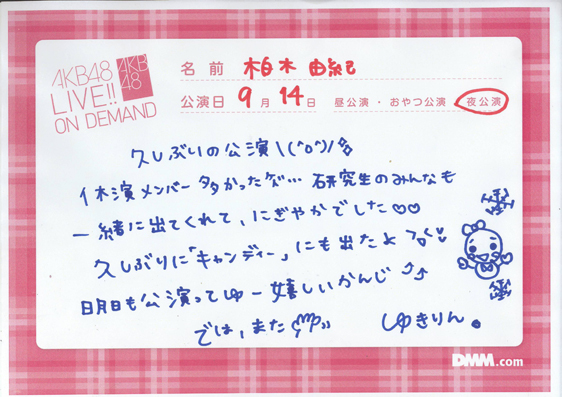 AKB48
LIVE!!
ON DEMAND
AKB
48
名前 柏木 由紀
公演日 9月14日 昼公演・おやつ公演・夜公演
久しぶりの公演\(^o^)/
休演メンバー多かったケド… 研究生のみんなも
一緒に出てくれて、にぎやかでした♡♡
久しぶりに「キャンディー」にも出たよ
明日も公演ってゆー嬉しいかんじ
では、また
ゆきりん。
DMM.com